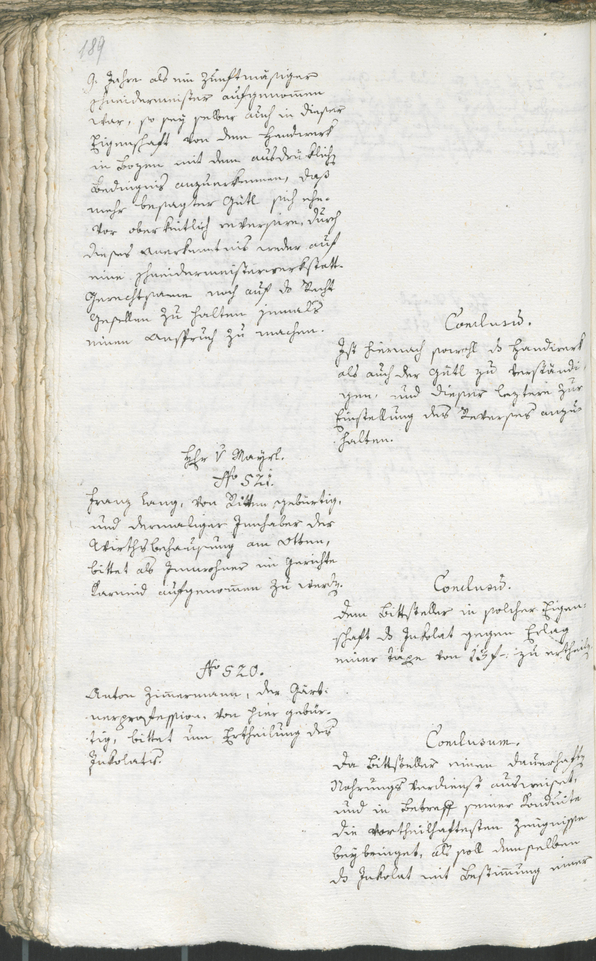 189
9. Jahre als ein zunftmäsiger
Schneidermeister aufgenommen
war, so sey selber auch in dieser
Eigenschaft von dem Handwerk
in Bozen mit dem ausdrüklich
Bedingnis anzuerkennen, daß
mehr besagter Gütl sich
vor oberkeitlich reversire, durch
dieses Anerkenntnis weder auf
eine Schneidermeisterwerkstatt
Gerechtsame noch auf das Recht
Gesellen zu halten jemals
einen Anspruch zu machen.
Conclusum.
Ist hiernach sowohl das Handwerk
als auch der Gütl zu verständi-
gen, und dieser leztere zur
Einstellung des Reverses anzu-
halten.
Hr v Mayrl.
No 521.
Franz Lang, von Ritten gebürtig,
und dermaliger Innhaber der
Wirthsbehausung am
bittet als Innwohner im Gerichte
Karneid aufgenommen zu werden.
Conclusum.
Dem Bittsteller in solcher Eigen-
schaft das Inkolat gegen Erlag
einer Taxe von 15 f. zu ertheilen
No 520.
Anton Zimmermann, der Gärt-
nerprofession von hier gebür-
tig, bittet um Ertheilung des
Inkolats.
Conclusum.
Da Bittsteller einen dauerhaften
Nahrungs Verdienst ausweiset,
und in Betreff seiner Konduite
die vortheilhaftesten Zeugnisse
beybringet, als soll demselben
das Inkolat mit Bestimmung einer